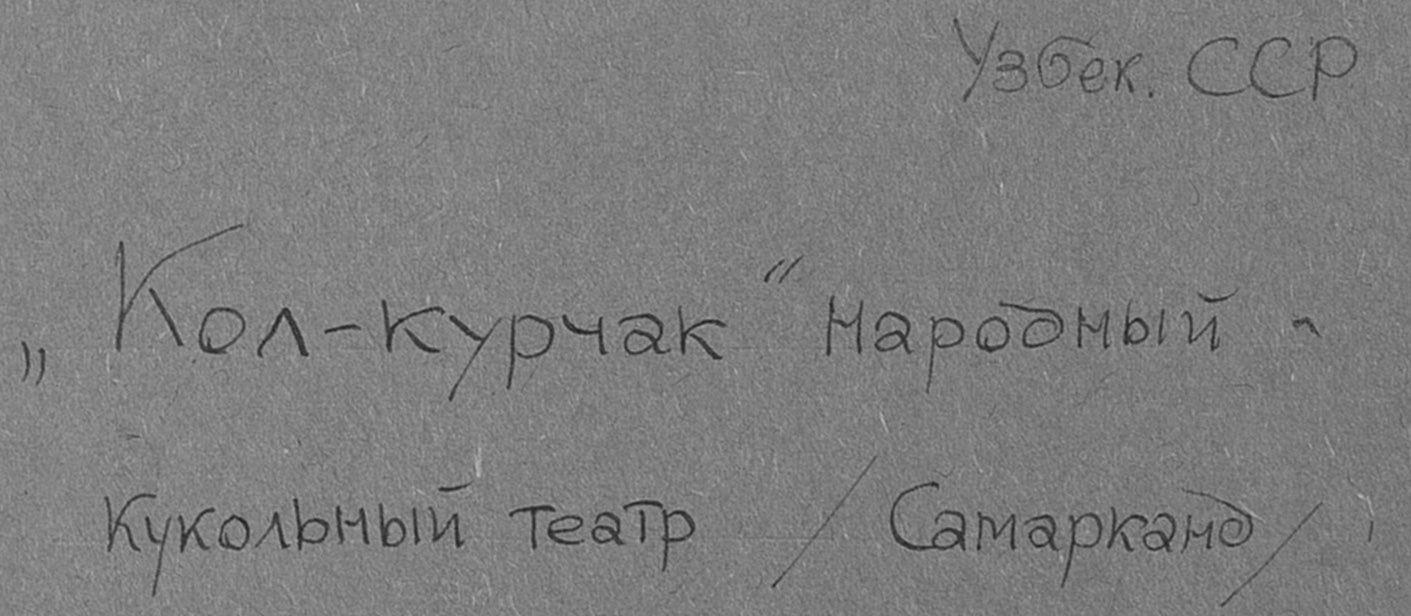 Узбек. ССР
„Кол-курчак" народный -
кукольный театр /Самарканд/